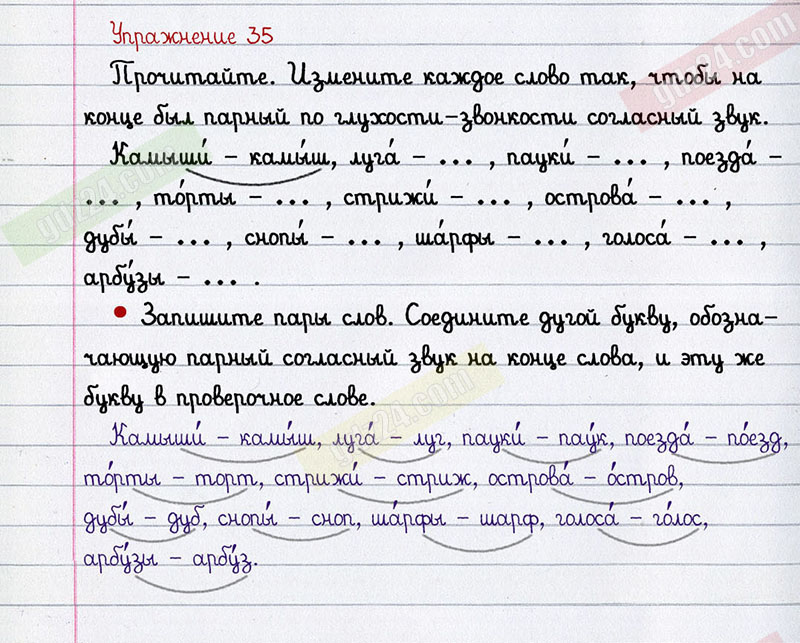 Упражнение 35
Прочитайте. Измените каждое слово так, чтобы на
конце был парный по глухости-звонкости согласный звук.
Камыши́ – камы́ш, луга́ – ... , пауки́ – ... , поезда́ –
... , то́рты – ... , стрижи́ – ... , острова́ – ... ,
дубы́ – ... , снопы́ – ... , ша́рфы – ... , голоса́ – ... ,
арбу́зы – ... .
• Запишите пары слов. Соедините дугой букву, обозна-
чающую парный согласный звук на конце слова, и эту же
букву в проверочное слове.
Камыши́ – камы́ш, луга́ – луг, пауки́ – пау́к, поезда́ – по́езд,
то́рты – торт, стрижи́ – стриж, острова́ – о́стров,
дубы́ – дуб, снопы́ – сноп, ша́рфы – шарф, голоса́ – го́лос,
арбу́зы – арбу́з.
gdz24.com
gdz24.com
gdz24.com